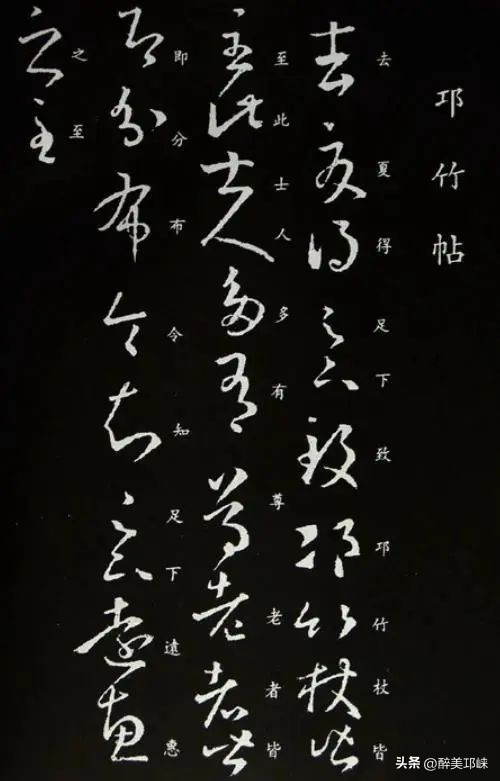 邛竹帖
去夏得足下致邛竹杖皆
至此士人多有尊老者皆
即分布令知足下遠惠
之至
头条 @醉美邛崃